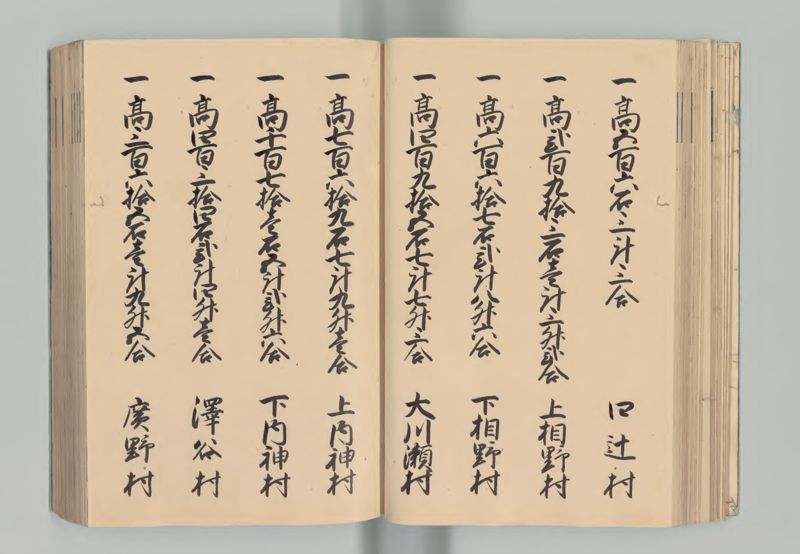 一髙五百六石三斗三合 口辻村
一髙弐百九拾三石壱斗三升弐合 上相野村
一髙六百六拾七石弐斗八升六合 下相野村
一髙四百九拾五石七斗七升三合 大川瀬村
一髙七百六拾九石七斗九升壱合 上内神村
一髙千百七拾壱石五斗弐升六合 下内神村
一髙四百三拾四石弐斗四升壱合 澤谷村
一髙三百六拾五石壱斗九升五合 廣野村